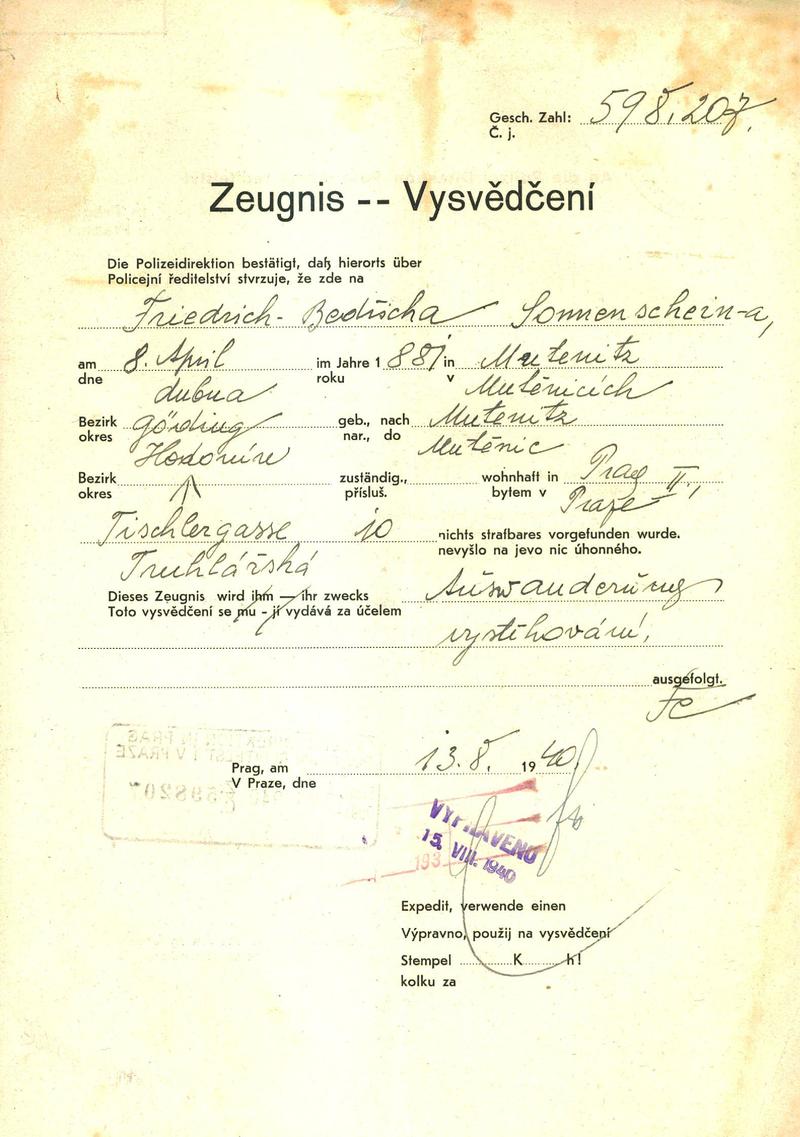 Gesch. Zahl: 598.207.
Č. j.
Zeugnis -- Vysvědčení
Die Polizeidirektion bestätigt, daß hierorts über
Policejní ředitelství stvrzuje, že zde na
Friedrich - Bedřicha Sonnenschein-a,
am 8. April im Jahre 1881 in Mutenitz
dne dubna roku v Mutěnicích
Bezirk Göding geb., nach Mutenitz
okres Hodoníne nar., do Mutěnic
Bezirk zuständig., wohnhaft in Prag II.,
okres přísluš. bytem v Praze
Tischlergasse 10 nichts strafbares vorgefunden wurde.
nevyšlo na jevo nic úhonného.
Truhlářská
Dieses Zeugnis wird ihm — ihr zwecks Auswanderung
Toto vysvědčení se mu - jí vydává za účelem
vystěhování,
ausgefolgt.
Prag, am 13.8. 1940.
V Praze, dne
VYPRAVENO
15. VIII. 1940
193
598207
Expedit, verwende einen
Výpravno, použij na vysvědčení
Stempel K h!
kolku za